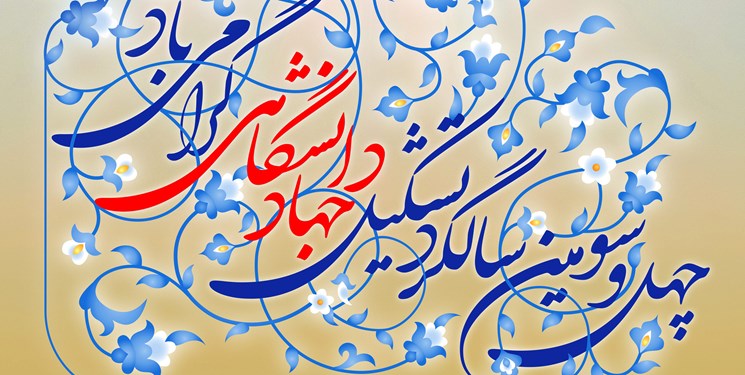 چهل و سومین سالگرد تشکیل
جهاد دانشگاهی
گرامی باد